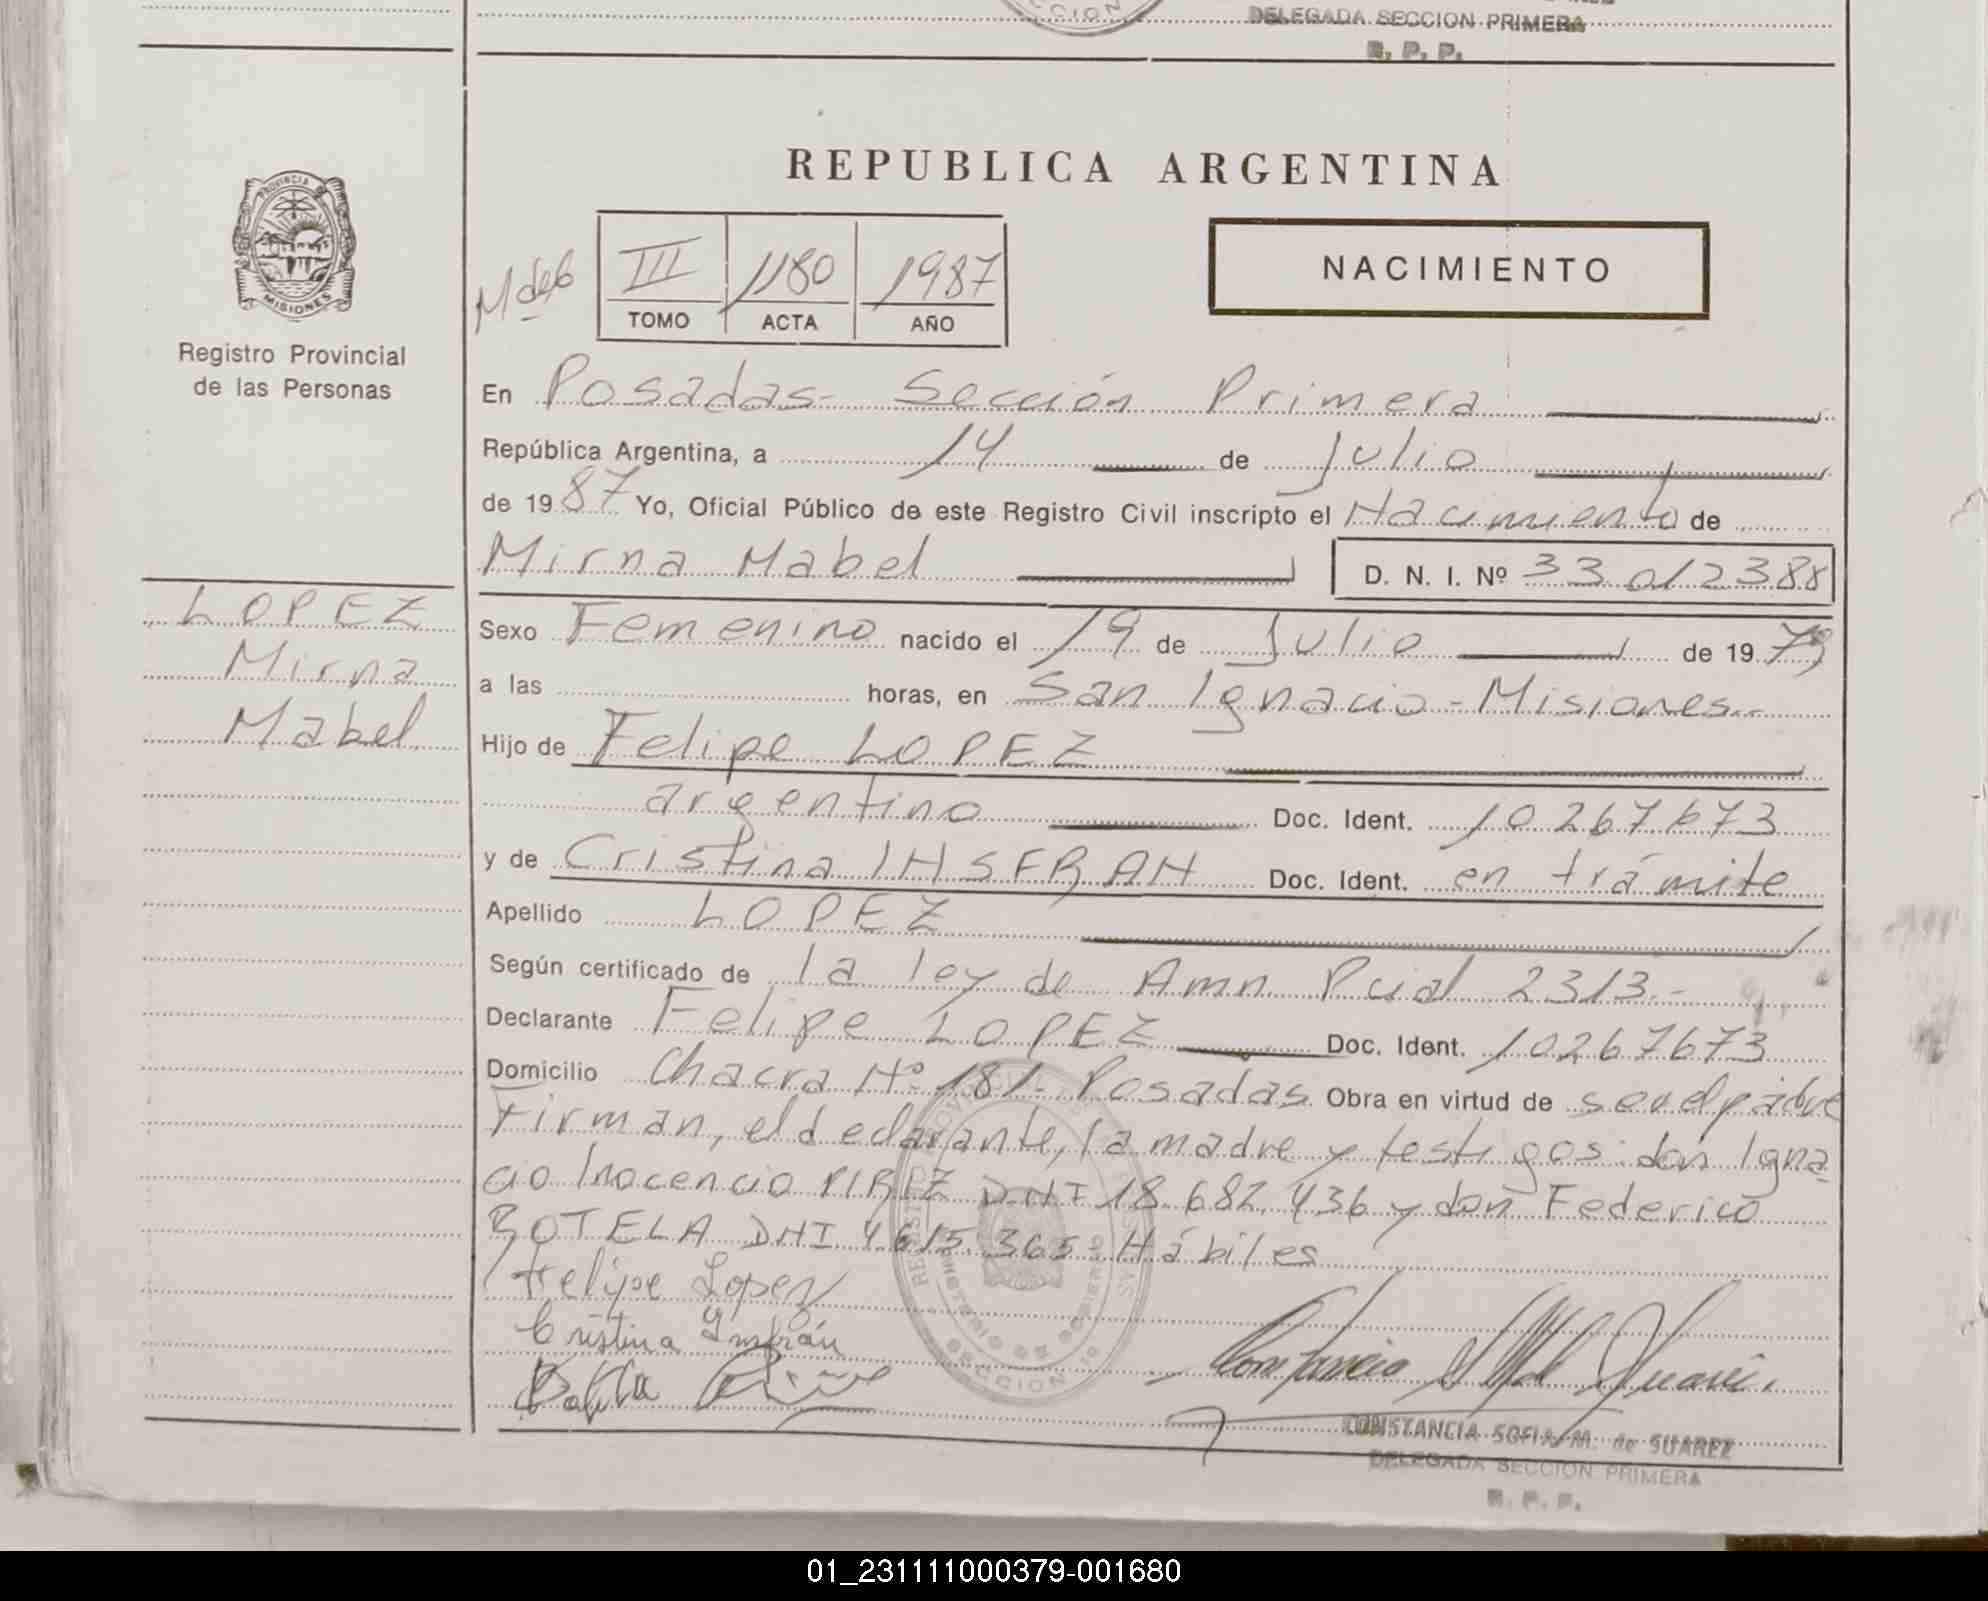 CCION
DELEGADA SECCION PRIMERA
R. P. P.
REPUBLICA ARGENTINA
PROVINCIA
MISIONES
Registro Provincial
de las Personas
III 1180 1987
TOMO ACTA AÑO
NACIMIENTO
En Posadas- Sección Primera
República Argentina, a 14 de Julio
de 1987 Yo, Oficial Público de este Registro Civil inscripto el Nacimiento de
Mirna Mabel D. N. I. Nº 33012388
LOPEZ
Mirna
Mabel
Sexo Femenino nacido el 19 de Julio de 1979
a las horas, en San Ignacio - Misiones.-
Hijo de Felipe LOPEZ
argentino Doc. Ident. 10267673
y de Cristina INSFRAN Doc. Ident. en trámite
Apellido LOPEZ
Según certificado de la ley de Amn Pcial 2313.-
Declarante Felipe LOPEZ Doc. Ident. 10267673
Domicilio Chacra Nº 181- Posadas Obra en virtud de ser el padre
Firman, el declarante, la madre y testigos: don Igna
cio Inocencio PIRIZ DNI 18.682.436 y don Federico
BOTELA DNI 4615.365- Hábiles
Felipe Lopez
Cristina Insfrán
CONSTANCIA SOFIA M. de SUAREZ
DELEGADA SECCION PRIMERA
R. P. P.
01_231111000379-001680